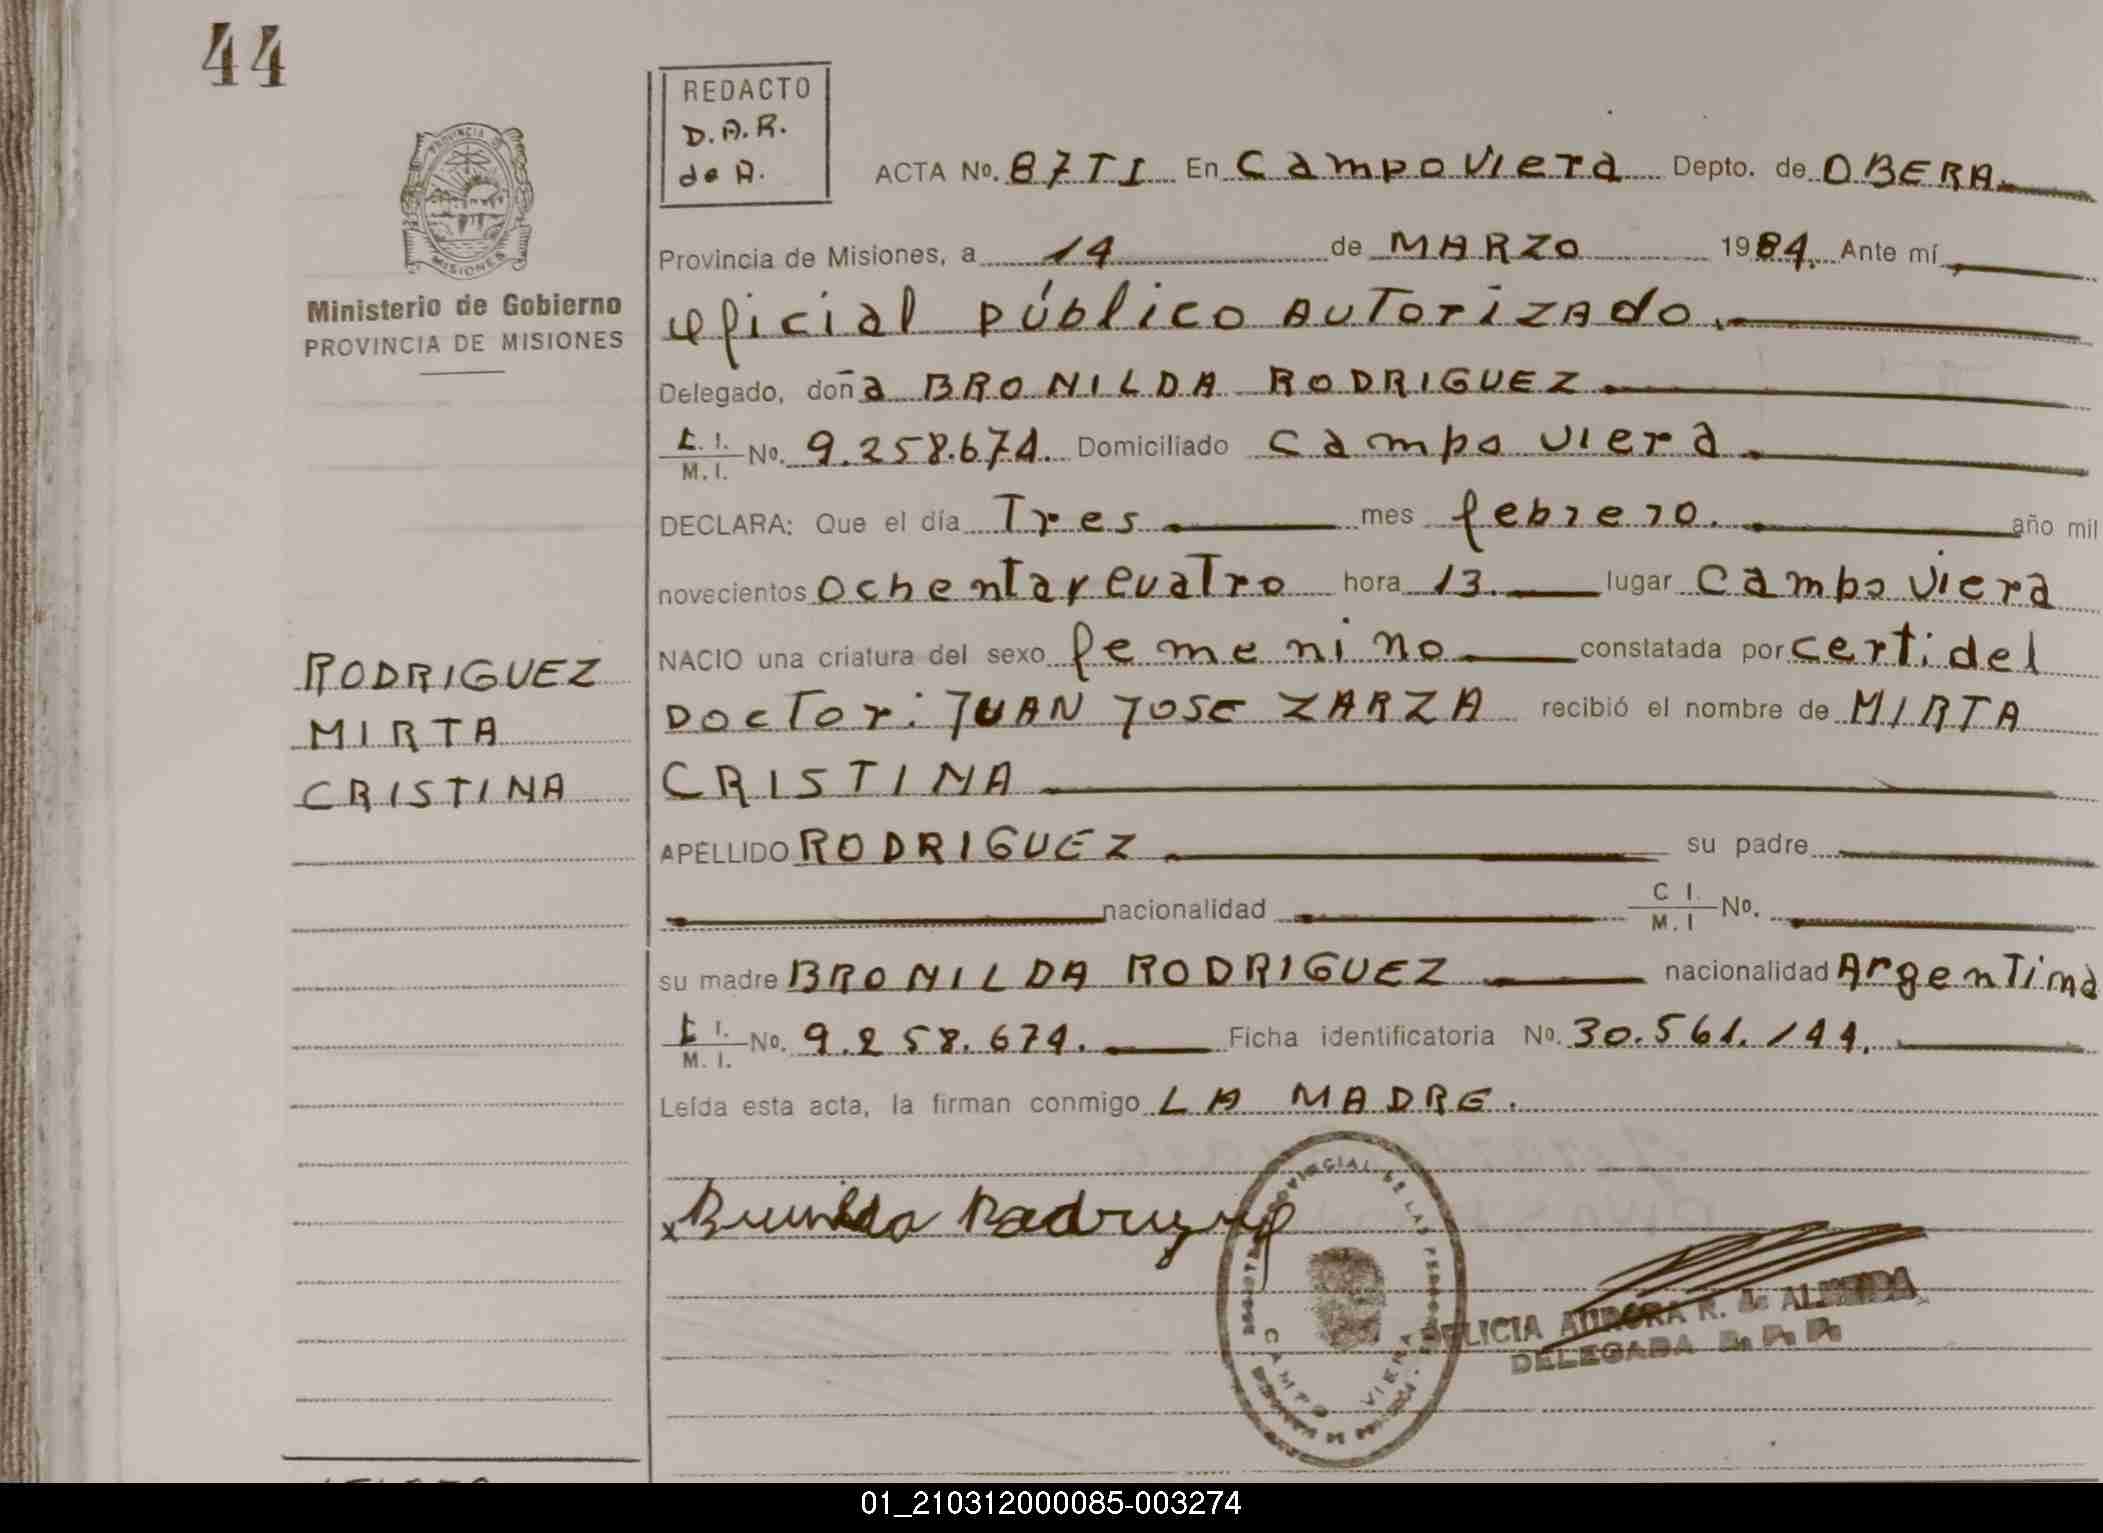 44
PROVINCIA DE
MISIONES
Ministerio de Gobierno
PROVINCIA DE MISIONES
RODRIGUEZ
MIRTA
CRISTINA
REDACTO
D.A.R.
de A.
ACTA No. 87TI En Campo Viera Depto. de OBERA
Provincia de Misiones, a 14 de MARZO 1984. Ante mí
oficial público AUTorizado.
Delegado, doña BRONILDA RODRIGUEZ
C. I. / M. I. No. 9.258.674. Domiciliado Campo Viera
DECLARA: Que el día Tres mes febrero. año mil
novecientos ochentaycuatro hora 13. lugar Campo Viera
NACIO una criatura del sexo femenino constatada por certi del
Doctor: JUAN JOSE ZARZA recibió el nombre de MIRTA
CRISTINA
APELLIDO RODRIGUEZ su padre
nacionalidad C I. / M. I No.
su madre BRONILDA RODRIGUEZ nacionalidad Argentina
C I. / M. I. No. 9.258.674. Ficha identificatoria No. 30.561.144.
Leída esta acta, la firman conmigo LA MADRE.
PROVINCIAL DE LAS
CAMPO VIERA
FELICIA AURORA R. de ALMEIDA
DELEGADA
01_210312000085-003274